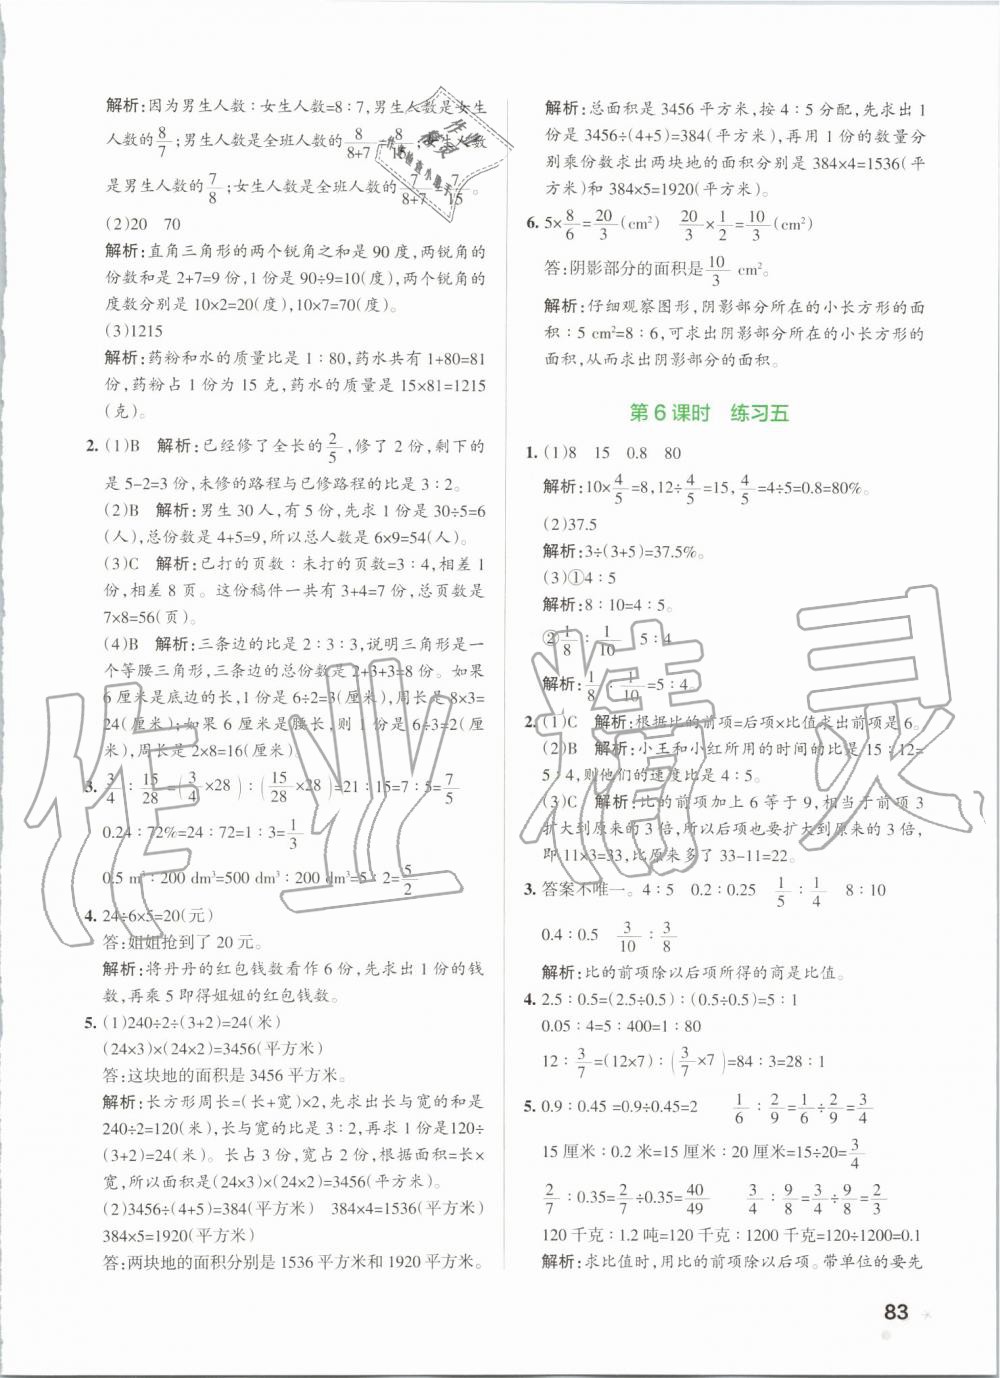 解析:因为男生人数∶女生人数=8∶7,男生人数是女生
人数的8/7;男生人数是全班人数的8/(8+7)=8/15;女生人数
是男生人数的7/8;女生人数是全班人数的7/(8+7)=7/15。
(2)20 70
解析:直角三角形的两个锐角之和是 90 度,两锐角的
份数和是 2+7=9 份,1 份是 90÷9=10(度),两个锐角的
度数分别是 10×2=20(度),10×7=70(度)。
(3)1215
解析:药粉和水的质量比是 1∶80,药水共有 1+80=81
份,药粉占 1 份为 15 克,药水的质量是 15×81=1215
(克)。
2. (1)B 解析:已经修了全长的2/5,修了 2 份,剩下的
是 5-2=3 份,未修的路程与已修路程的比是 3∶2。
(2)B 解析:男生 30 人,有 5 份,先求 1 份是 30÷5=6
(人),总份数是 4+5=9,所以总人数是 6×9=54(人)。
(3)C 解析:已打的页数∶未打的页数=3∶4,相差 1
份,相差 8 页。这份稿件一共有 3+4=7 份,总页数是
7×8=56(页)。
(4)B 解析:三条边的比是 2∶3∶3,说明三角形是一
个等腰三角形,三条边的总份数是 2+3+3=8 份。如果
6 厘米是底边的长,1 份是 6÷2=3(厘米),周长是 8×3=
24(厘米);如果 6 厘米是腰长,则 1 份是 6÷3=2(厘
米),周长是 2×8=16(厘米)
3. 3/4∶15/28=(3/4×28)∶(15/28×28)=21∶15=7∶5=7/5
0.24∶72%=24∶72=1∶3=1/3
0.5 m³∶200 dm³=500 dm³∶200 dm³=5∶2=5/2
4. 24÷6×5=20(元)
答:姐姐抢到了 20 元。
解析:将丹丹的红包钱数看作 6 份,先求出 1 份的钱
数,再乘 5 即得姐姐的红包钱数。
5. (1)240÷2÷(3+2)=24(米)
(24×3)×(24×2)=3456(平方米)
答:这块地的面积是 3456 平方米。
解析:长方形周长=(长+宽)×2,先求出长与宽的和是
240÷2=120(米),长与宽的比是 3∶2,再求 1 份是120÷
(3+2)=24(米)。长占 3 份,宽占 2 份,根据面积=长×
宽,所以面积是(24×3)×(24×2)=3456(平方米)。
(2)3456÷(4+5)=384(平方米) 384×4=1536(平方米)
384×5=1920(平方米)
答:两块地的面积分别是 1536 平方米和 1920 平方米。
解析:总面积是 3456 平方米,按 4∶5 分配,先求出 1
份是 3456÷(4+5)=384(平方米),再用 1 份的数量分
别乘份数求出两块地的面积分别是 384×4=1536(平
方米)和 384×5=1920(平方米)。
6. 5×8/6=20/3(cm²) 20/3×1/2=10/3(cm²)
答:阴影部分的面积是10/3 cm²。
解析:仔细观察图形,阴影部分所在的小长方形的面
积∶5 cm²=8∶6,可求出阴影部分所在的小长方形的
面积,从而求出阴影部分的面积。
第 6 课时 练习五
1. (1)8 15 0.8 80
解析:10×4/5=8,12÷4/5=15,4/5=4÷5=0.8=80%。
(2)37.5
解析:3÷(3+5)=37.5%。
(3)①4∶5
解析:8∶10=4∶5。
②1/8∶1/10 5∶4
解析:1/8∶1/10=5∶4。
2. (1)C 解析:根据比的前项=后项×比值求出前项是 6。
(2)B 解析:小王和小红所用的时间的比是 15∶12=
5∶4,则他们的速度比是 4∶5。
(3)C 解析:比的前项加上 6 等于 9,相当于前项 3
扩大到原来的 3 倍,所以后项也要扩大到原来的 3 倍,
即 11×3=33,比原来多了 33-11=22。
3. 答案不唯一。4∶5 0.2∶0.25 1/5∶1/4 8∶10
0.4∶0.5 3/10∶3/8
解析:比的前项除以后项所得的商是比值。
4. 2.5∶0.5=(2.5÷0.5)∶(0.5÷0.5)=5∶1
0.05∶4=5∶400=1∶80
12∶3/7=(12×7)∶(3/7×7)=84∶3=28∶1
5. 0.9∶0.45 =0.9÷0.45=2 1/6∶2/9=1/6÷2/9=3/4
15 厘米∶0.2 米=15 厘米∶20 厘米=15÷20=3/4
2/7∶0.35=2/7÷0.35=40/49 3/4∶9/8=3/4÷9/8=2/3
120 千克∶1.2 吨=120 千克∶1200 千克=120÷1200=0.1
解析:求比值时,用比的前项除以后项。带单位的要先
83
作业精灵